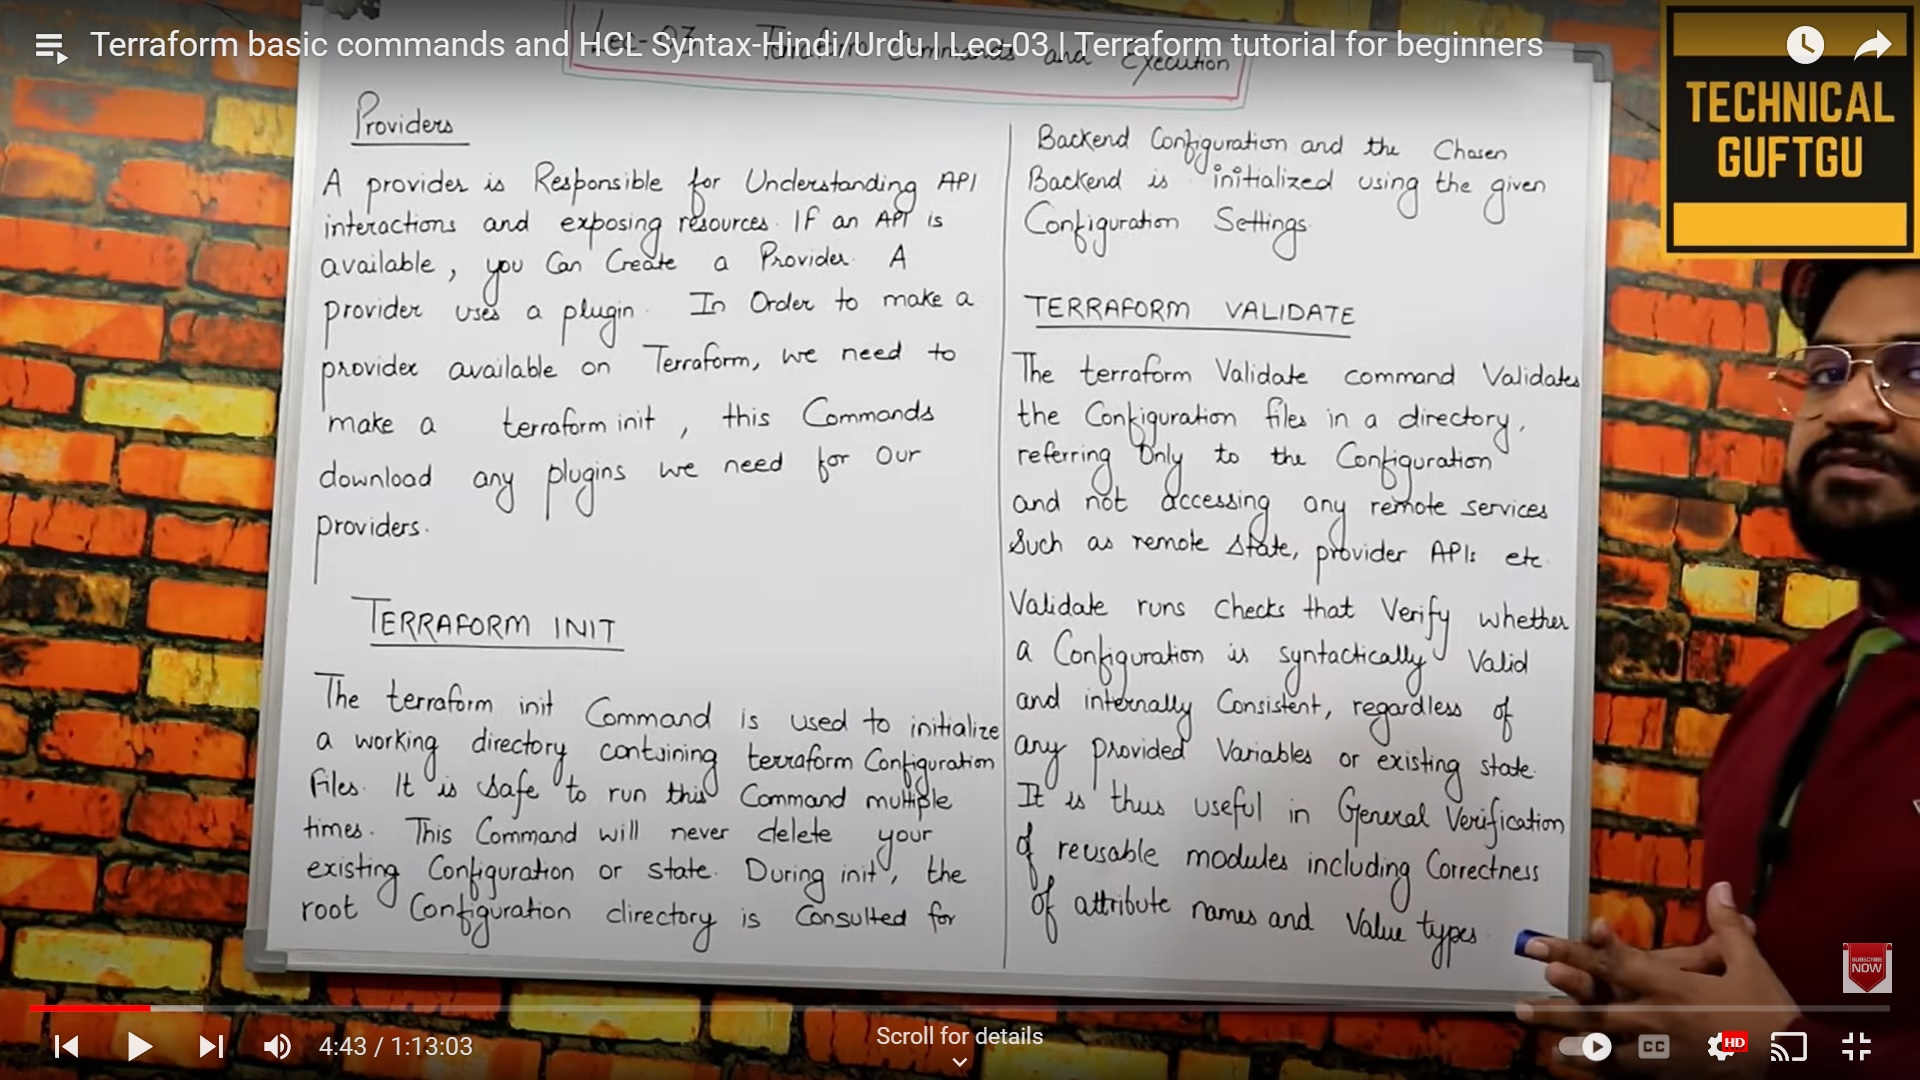 Terraform basic commands and HCL Syntax-Hindi/Urdu | Lec-03 | Terraform tutorial for beginners
Lec-03 Terraform Commands and Execution
TECHNICAL
GUFTGU
Providers
A provider is Responsible for Understanding API
interactions and exposing resources. If an API is
available, you Can Create a Provider. A
provider uses a plugin. In Order to make a
provider available on Terraform, we need to
make a terraform init, this Commands
download any plugins we need for Our
providers.
TERRAFORM INIT
The terraform init Command is used to initialize
a working directory containing terraform Configuration
files. It is safe to run this Command multiple
times. This Command will never delete your
existing Configuration or state. During init, the
root Configuration directory is Consulted for
Backend Configuration and the Chosen
Backend is initialized using the given
Configuration Settings.
TERRAFORM VALIDATE
The terraform Validate command Validates
the Configuration files in a directory,
referring Only to the Configuration
and not accessing any remote services
Such as remote state, provider APIs etc.
Validate runs Checks that Verify whether
a Configuration is syntactically Valid
and internally Consistent, regardless of
any provided Variables or existing state.
It is thus useful in General Verification
of reusable modules including Correctness
of attribute names and Value types.
SUBSCRIBE
NOW
4:43 / 1:13:03
Scroll for details
CC
HD